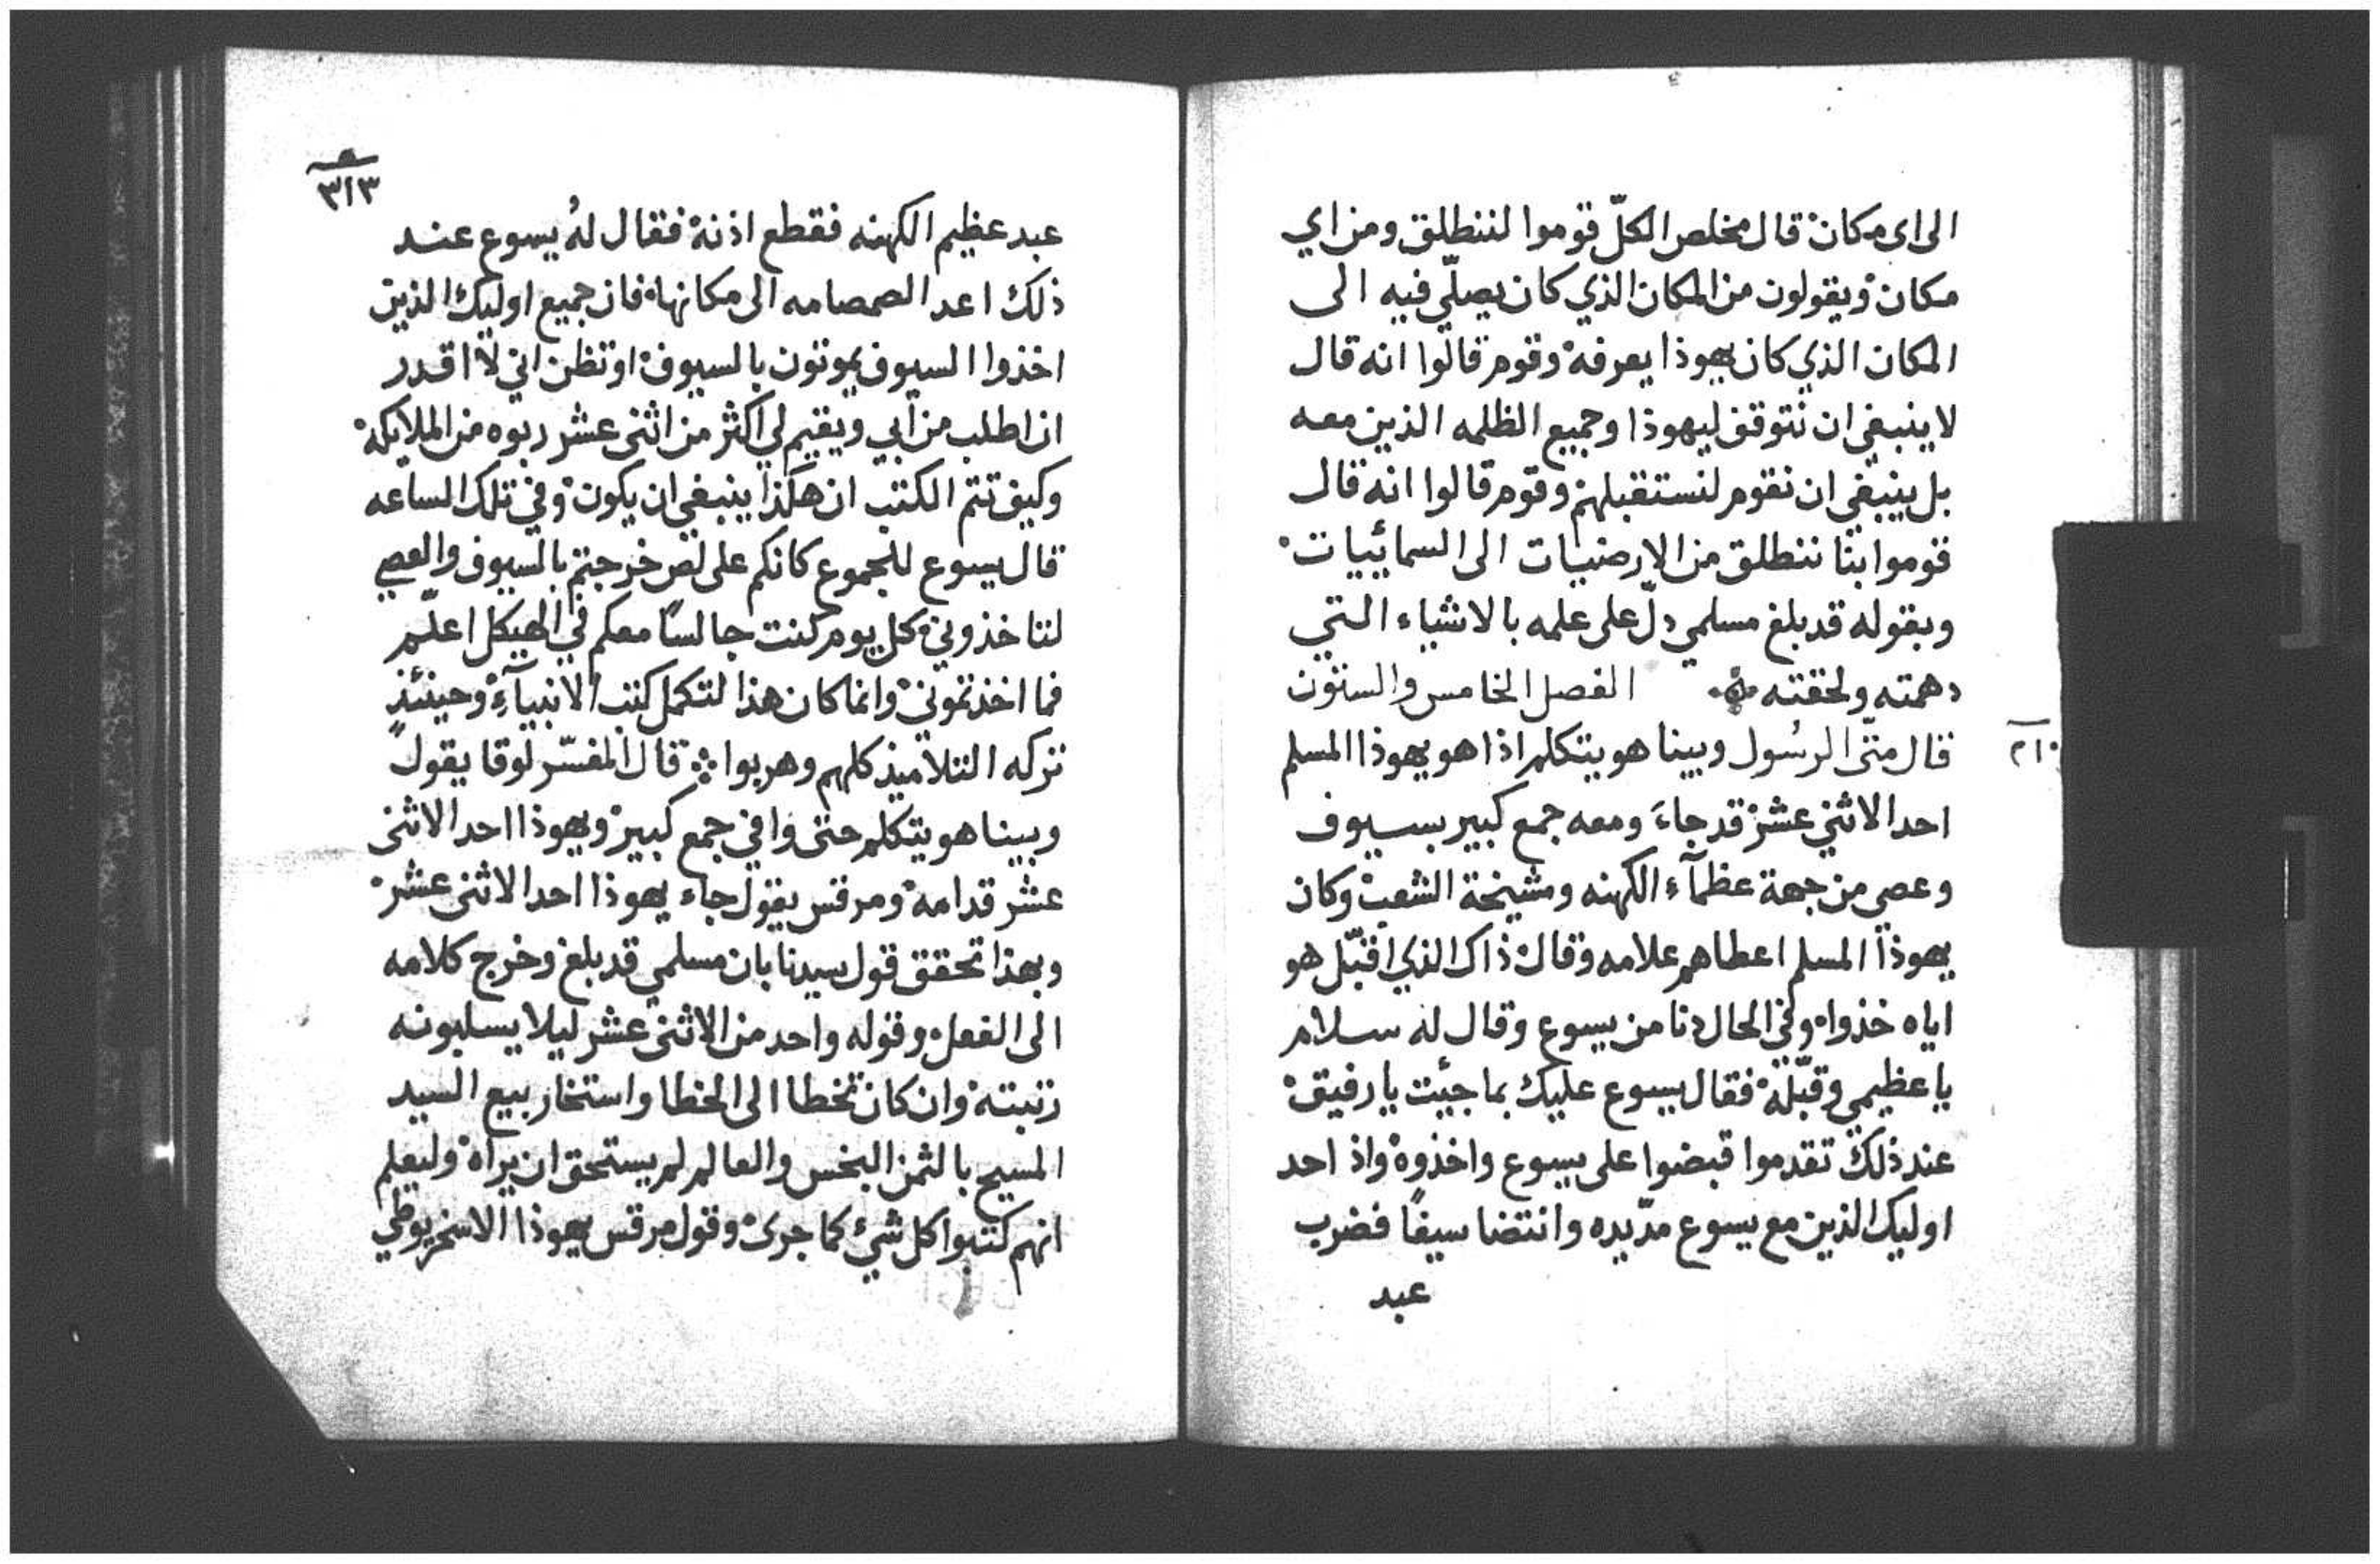 الى اى مكان قال مخلص الكلّ قوموا لننطلق ومن اي
مكان ويقولون من المكان الذي كان يصلّي فيه الى
المكان الذي كان يهوذا يعرفه وقوم قالوا انه قال
لا ينبغي ان نتوقف ليهوذا وجميع الظلمه الذين معه
بل ينبغي ان نقوم لنستقبلهم وقوم قالوا انه قال
قوموا بنا ننطلق من الارضيات الى السمائييات
وبقوله قد بلغ مسلمي دلّ على علمه بالاشياء التي
دهمته ولحقته الفصل الخامس والستون
قال متّى الرسُول وبينا هو يتكلم اذا هو يهوذا المسلم
٢١٠
احد الاثني عشر قد جاءَ ومعه جمع كبير بسيوف
وعصي من جهة عظمآء الكهنه ومشيخة الشعب وكان
يهوذا المسلم اعطاهم علامه وقال ذاك الذي اقبّل هو
اياه خذوا وفي الحال دنا من يسوع وقال له سلام
يا عظيمي وقبّله فقال يسوع عليك بما جيئت يا رفيق
عند ذلك تقدموا قبضوا على يسوع واخذوه واذ احد
اوليك الذين مع يسوع مدّ يده وانتضا سيفًا فضرب
عبد
٣١٣
عبد عظيم الكهنه فقطع اذنه فقال لهُ يسوع عند
ذلك اعد الصمصامه الى مكانها فان جميع اوليك الذين
اخذوا السيوف يموتون بالسيوف او تظن اني لا اقدر
ان اطلب من ابي ويقيم لي اكثر من اثنى عشر ربوه من الملايكه
وكيف تتم الكتب ان هكذا ينبغي ان يكون وفي تلك الساعه
قال يسوع للجموع كانكم على لص خرجتم بالسيوف والعصي
لتاخذوني وكل يوم كنت جالسًا معكم في الهيكل اعلّم
فما اخذتموني وانما كان هذا لتكمل كتب الانبيآءِ وحينئذٍ
تركه التلاميذ كلهم وهربوا قال المفسّر لوقا يقول
وبينا هو يتكلم حتى وافي جمع كبير ويهوذا احد الاثنى
عشر قدامه ومرقس يقول جاء يهوذا احد الاثنى عشر
وبهذا تحقق قول سيدنا بان مسلمي قد بلغ وخرج كلامه
الى الفعل وقوله واحد من الاثنى عشر ليلا يسلبونه
رتبته وان كان تخطا الى الخطا واستخار بيع السيد
المسيح بالثمن البخس والعالم لم يستحق ان يراه وليعلم
انهم كتبوا كل شيء كما جرى وقول مرقس يهوذا الاسخريوطي